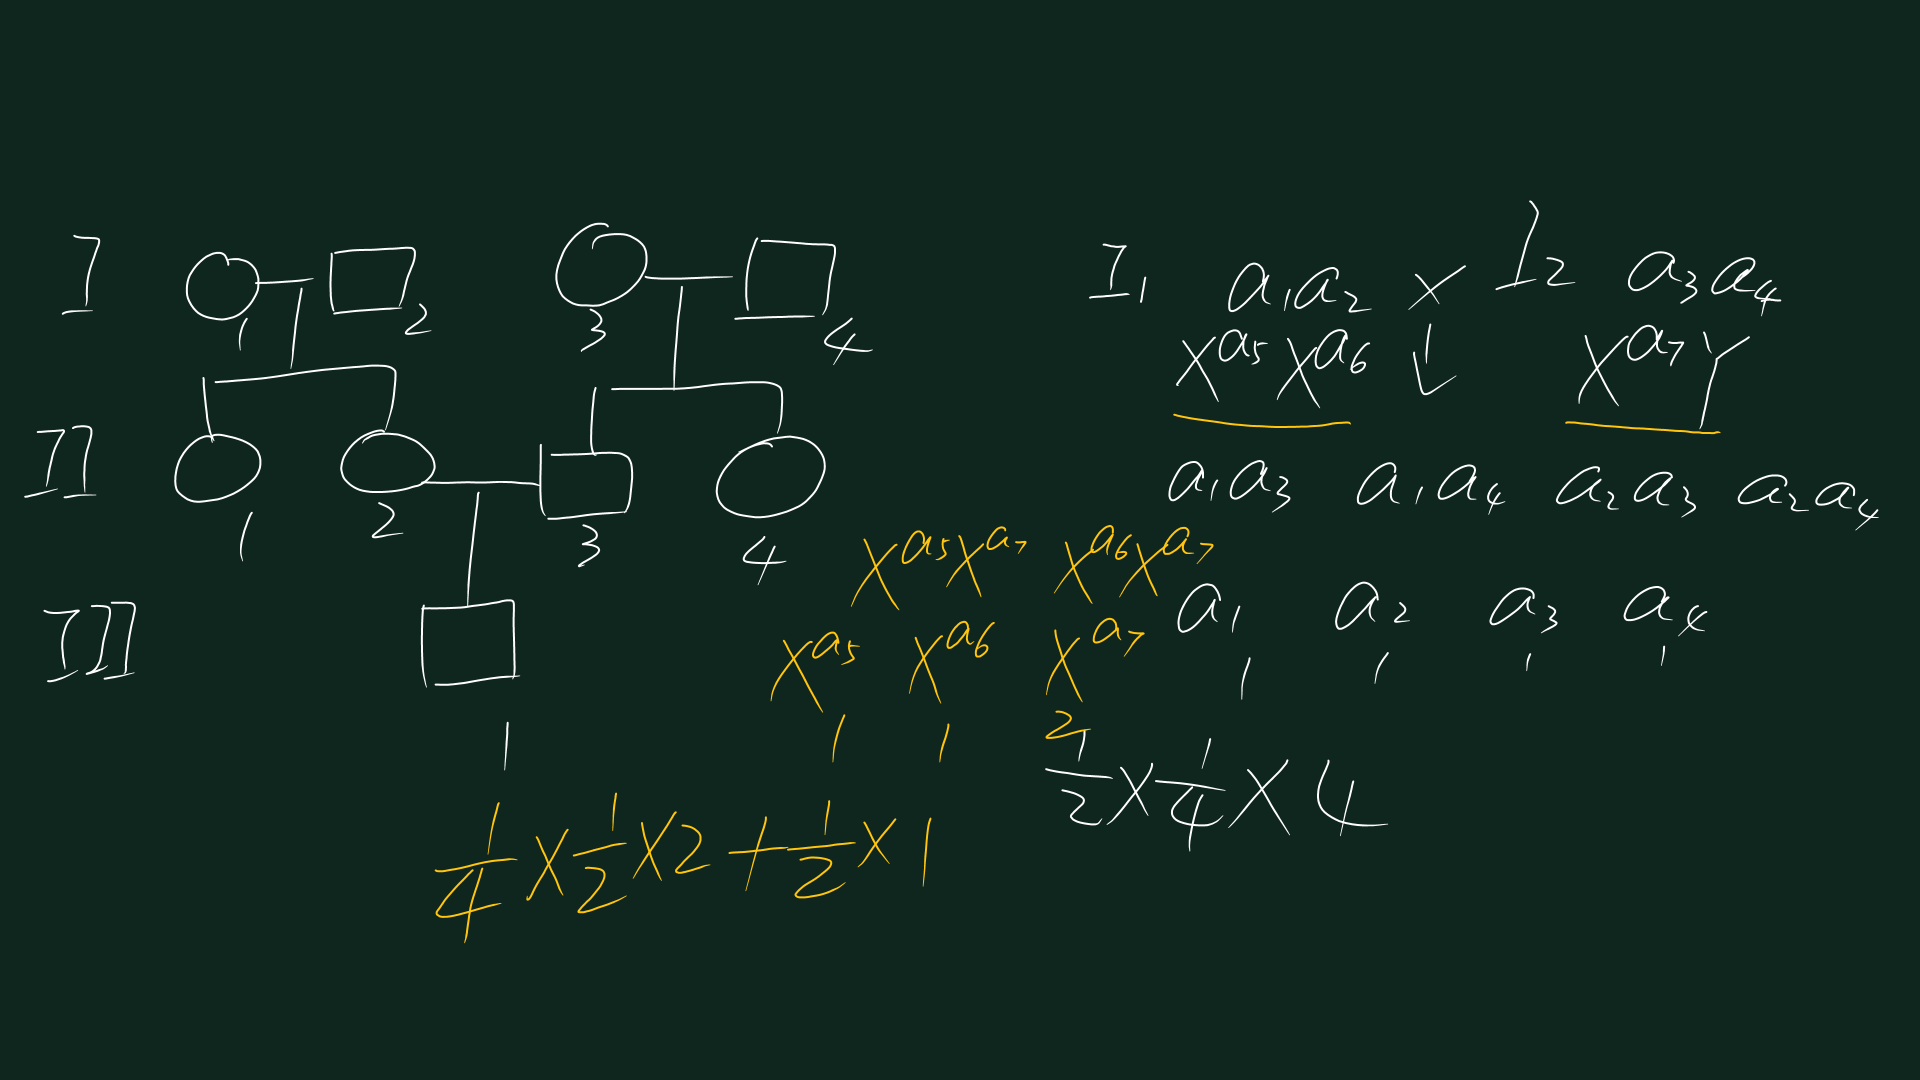 I 1 2 3 4
II 1 2 3 4
III 1
I₁ a₁a₂ × I₂ a₃a₄
Xᵃ⁵Xᵃ⁶ ↓ Xᵃ⁷Y
a₁a₃ a₁a₄ a₂a₃ a₂a₄
Xᵃ⁵Xᵃ⁷ Xᵃ⁶Xᵃ⁷
a₁ a₂ a₃ a₄
1 1 1 1
Xᵃ⁵ Xᵃ⁶ Xᵃ⁷
1 1 2
1/2 × 1/4 × 4
1/4 × 1/2 × 2 + 1/2 × 1